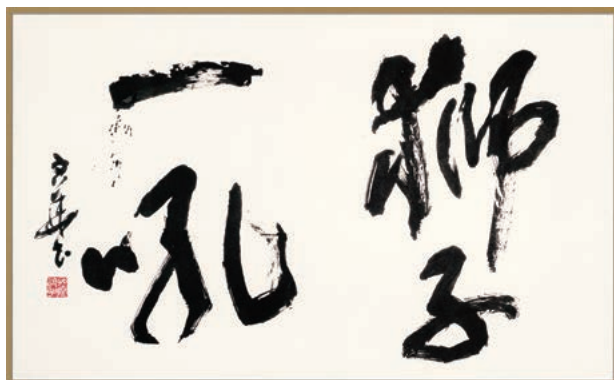 獅子
一吼